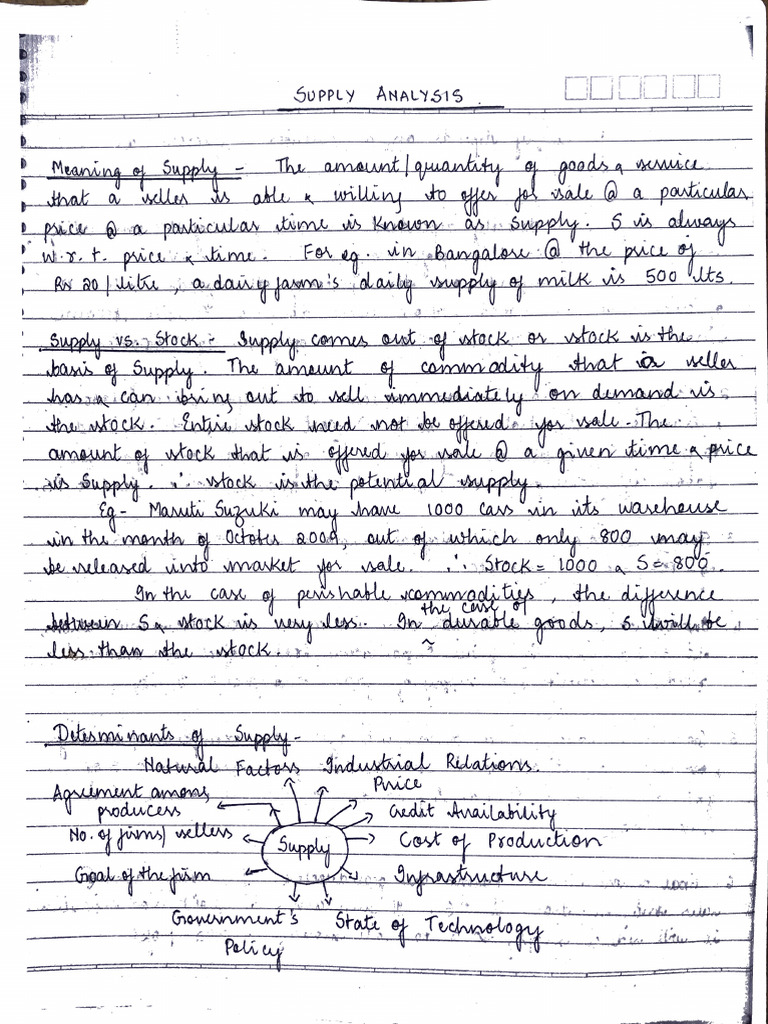 SUPPLY ANALYSIS
Meaning of Supply - The amount/quantity of goods & service
that a seller is able & willing to offer for sale @ a particular
price @ a particular time is known as Supply. S is always
w.r.t. price & time. For eg. in Bangalore @ the price of
Rs 20/litre, a dairy farm's daily supply of milk is 500 lts.
Supply vs. Stock - Supply comes out of stock or stock is the
basis of Supply. The amount of commodity that a seller
has & can bring out to sell immediately on demand is
the stock. Entire stock need not be offered for sale. The
amount of stock that is offered for sale @ a given time & price
is Supply. ∴ stock is the potential supply.
Eg- Maruti Suzuki may have 1000 cars in its warehouse
in the month of October 2009, out of which only 800 may
be released into market for sale. ∴ Stock = 1000 & S = 800.
In the case of perishable commodities, the difference
between S & stock is very less. In the case of durable goods, S will be
less than the stock.
Determinants of Supply -
Natural Factors Industrial Relations.
Price
Agreement among
producers
Credit Availability
No. of firms/sellers
Supply
Cost of Production
Goal of the firm
Infrastructure
Government's
Policy
State of Technology